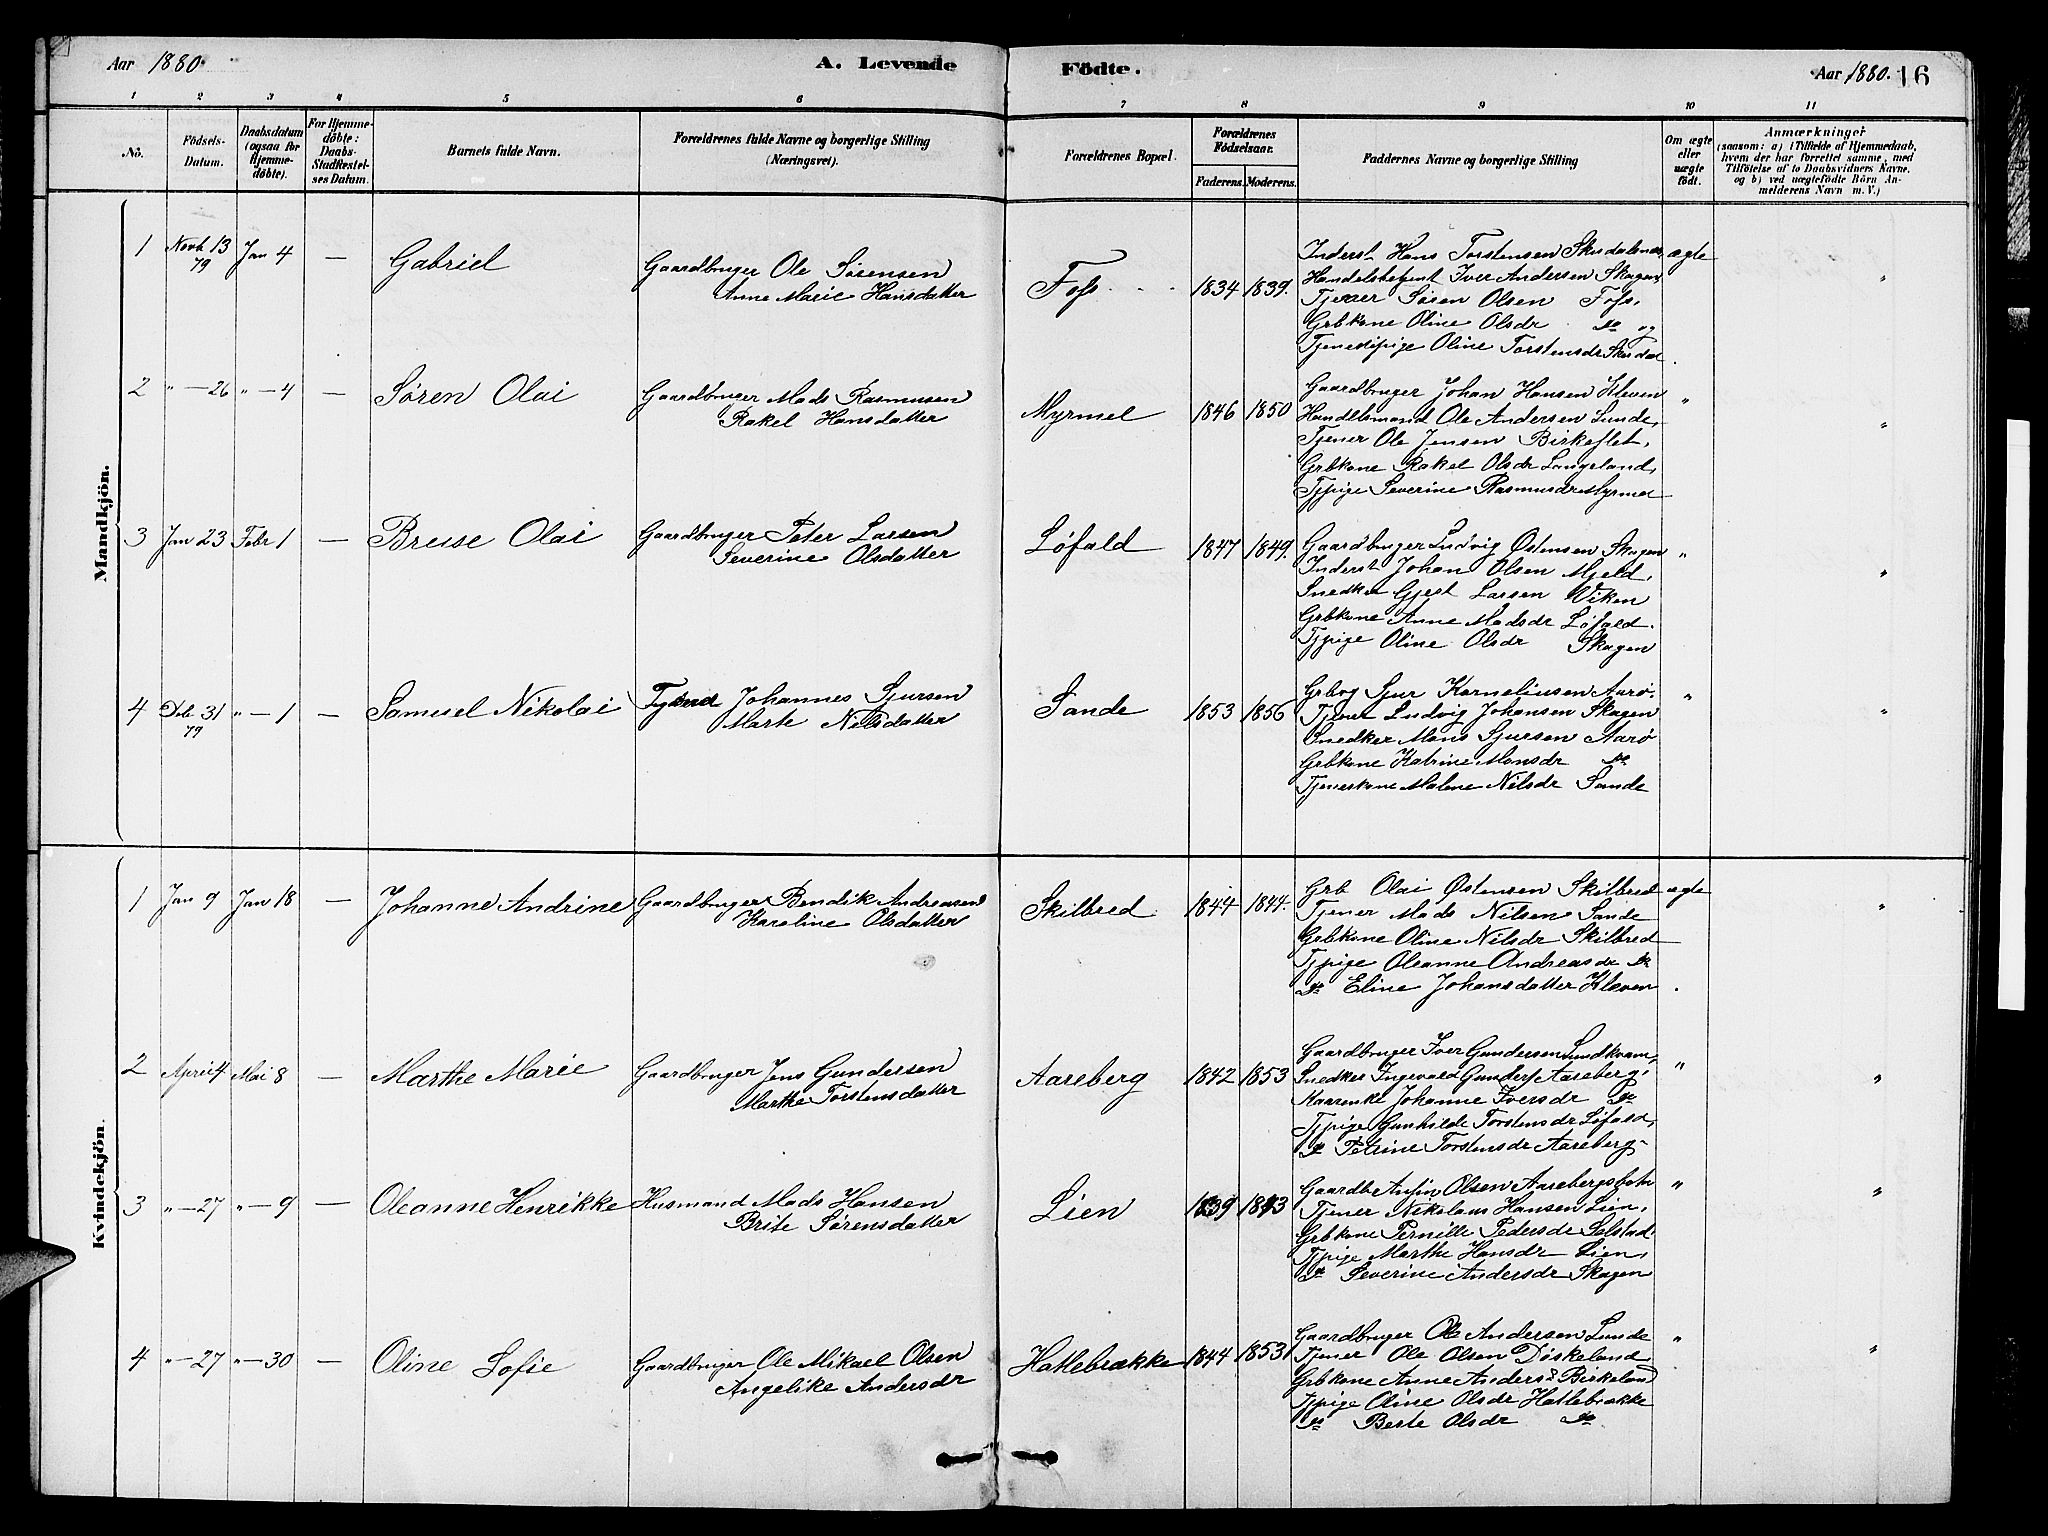 Aar 1880. A. Levende Födte. Aar 1880. 16
1 2 3 4 5 6 7 8 9 10 11
No. Födsels-Datum. Daabsdatum (ogsaa for Hjemmedöbte). For Hjemmedöbte: Daabs-Stadfæstelses Datum. Barnets fulde Navn. Forældrenes fulde Navne og borgerlige Stilling (Næringsvei). Forældrenes Bopæl. Forældrenes Födselsaar. Faderens. Moderens. Faddernes Navne og borgerlige Stilling Om ægte eller uægte födt. Anmærkninger (saasom: a) i Tilfælde af Hjemmedaab, hvem der har forrettet samme, med Tilföielse af to Daabsvidners Navne, og b) ved uægtefödte Börn Anmelderens Navn m. V.)
Mandkjön.
1 Novb 13 79 Jan 4 — Gabriel Gaardbruger Ole Sørensen
Anne Marie Hansdatter
Foss 1834 1839.
Inderst Hans Torstensen Skusdalsnes, ægte "
Handelsbetjent Iver Andersen Skagen,
Tjener Søren Olsen Foss,
Grbkone Oline Olsdr do og
Tjenestpige Oline Torstensdr Skusdal.
2 " — 26 " — 4 — Søren Olai Gaardbruger Mads Rasmusen
Rakel Hansdatter
Myrmel 1846 1850
Gaardbruger Johan Hansen Kleven " "
Handelsmand Ole Andersen Lunde,
Tjener Ole Jensen Birkeflet,
Grbkone Rakel Olsdr Langeland,
Tjpige Severine Rasmusdr Myrmel
3 Jan 23 Febr 1 — Brese Olai Gaardbruger Peter Larsen
Severine Olsdatter
Løfald 1847 1849.
Gaardbruger Ludvig Østensen Skagen " "
Inderst Johan Olsen Mjeld,
Snedker Gjest Larsen Viken
Grbkone Anne Madsdr Løfald.
Tjpige Oline Olsdr Skagen
4 Deb 31 79 " — 1 — Samuel Nikolai Tjener Johannes Sjursen
Marte Nilsdatter
Sande 1853 1856
Grbrg Sjur Korneliusen Aarø. " "
Tjener Ludvig Johansen Skagen
Snedker Mons Sjursen Aarø
Grbkone Katrine Monsdr do
Tjenerkone Malene Nilsdr Sande
Kvindekjön.
1 Jan 9 Jan 18 — Johanne Andrine Gaardbruger Bendik Andreasen
Karoline Olsdatter
Skilbred 1844 1844.
Grb Olai Østensen Skilbred ægte "
Tjener Mads Nilsen Sande
Grbkone Oline Nilsdr Skilbred
Tjpige Oleanne Andreasdr do
do Eline Johansdatter Kleven.
2 April 4 Mai 8 — Marthe Marie Gaardbruger Jens Gundersen
Marthe Torstensdatter
Aareberg 1842 1853
Gaardbruger Iver Gundersen Sundkvam, " "
Snedker Ingevald Gunders Aareberg,
Kaarenke Johanne Iversdr do
Tjpige Gunhilde Torstensdr Løfald,
do Petrine Torstensdr Aareberg
3 " — 27 " — 9 — Oleanne Henrikke Husmand Mads Hansen
Brite Sørensdatter
Lien 1839 1843
Gaardb Anfin Olsen Aarebergsbotn " "
Tjener Nikolaus Hansen Lien,
Grbkone Pernille Pedersdr Selstad.
Tjpige Marthe Hansdr Lien,
do Severine Andersdr Skagen
4 " — 27 " — 30 — Oline Sofie Gaardbruger Ole Mikael Olsen
Angelike Andersdr
Hatlebrække 1844 1853
Gaardbruger Ole Andersen Lunde " "
Tjener Ole Olsen Døskeland,
Grbkone Anne Andersd Birkeland
Tjpige Oline Olsdr Hatlebrække
do Berte Olsdr do.